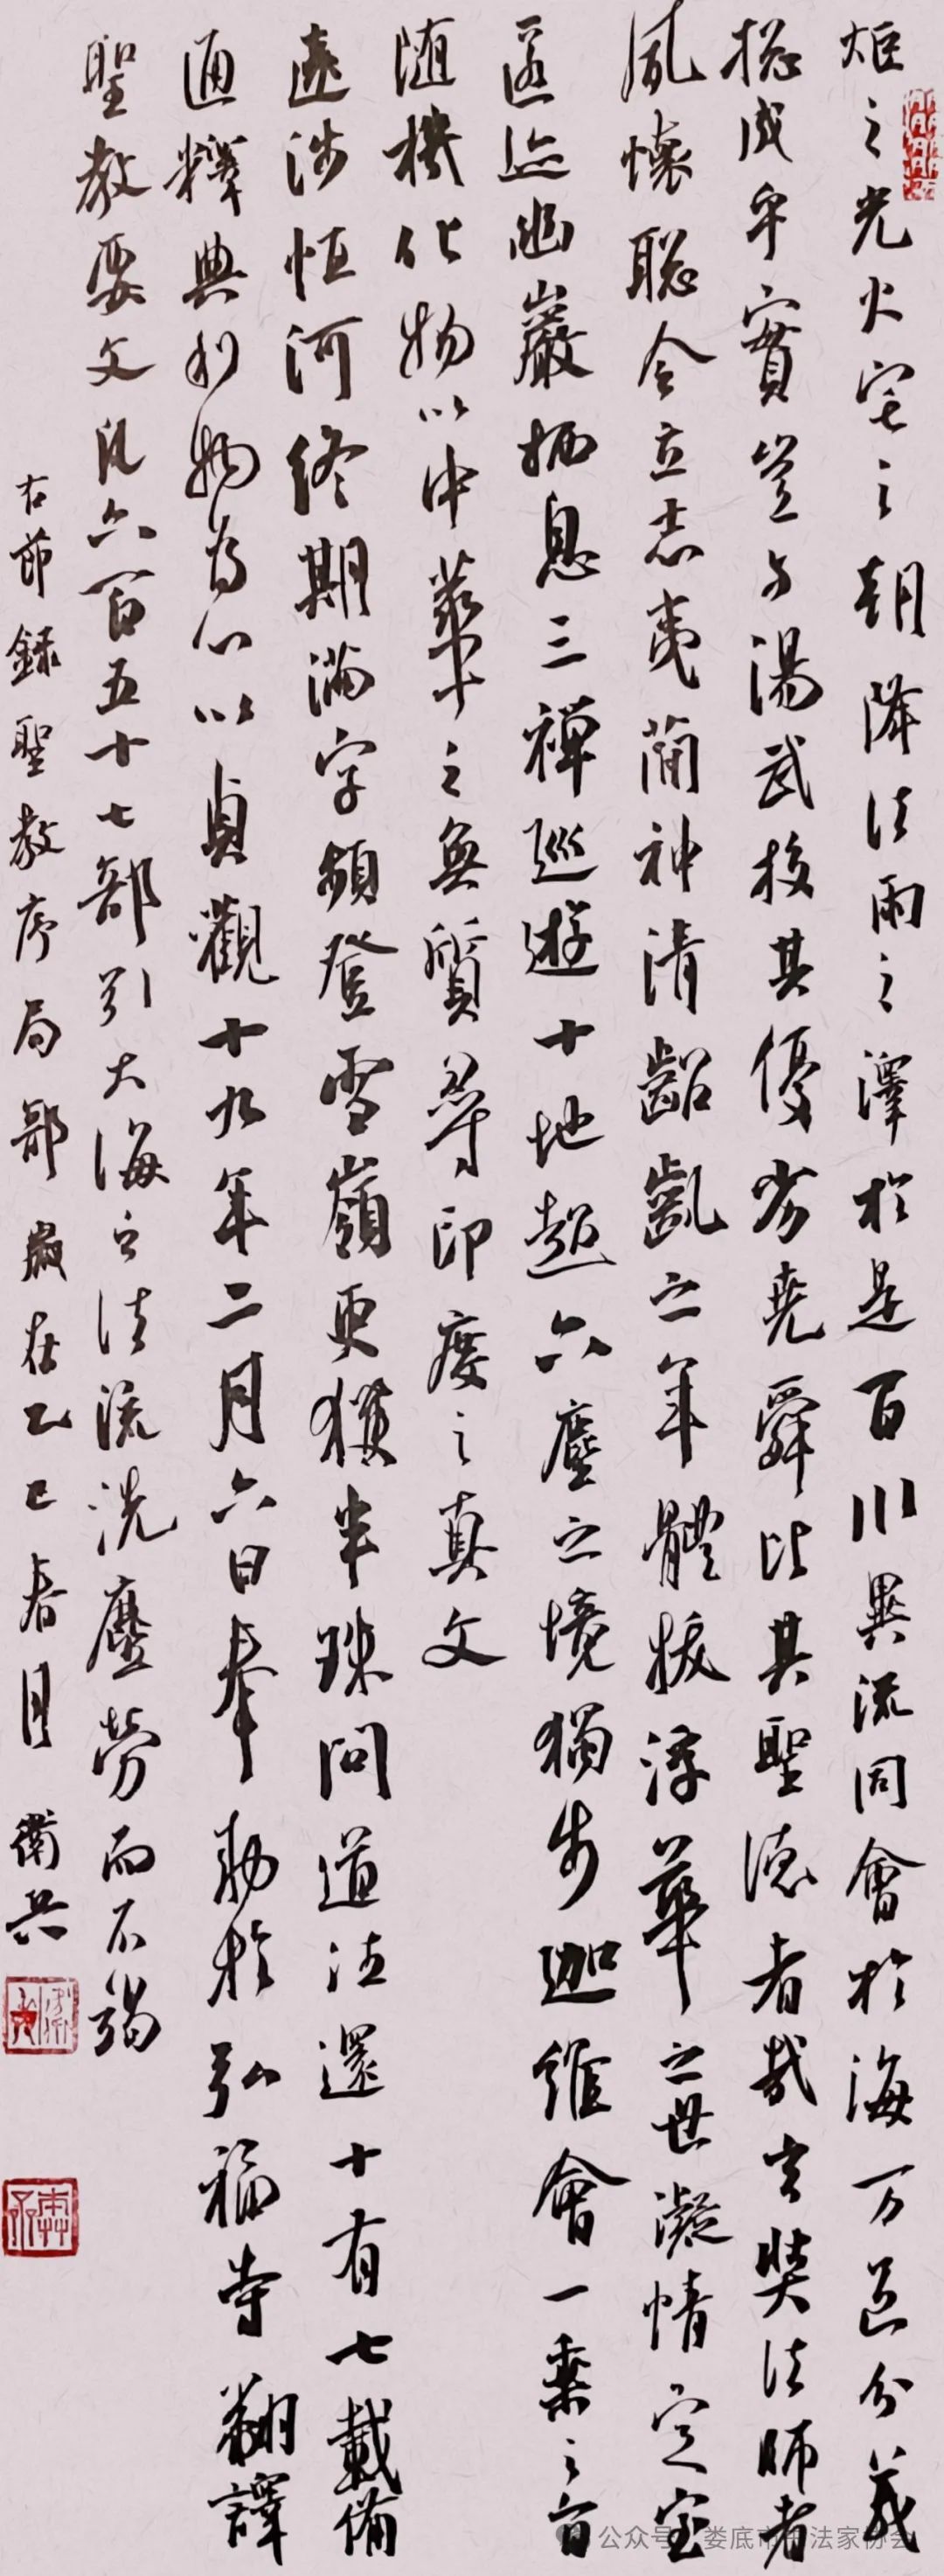 炬之光火宅之朝降法雨之澤於是百川異流同會於海万區分義
揔成乎實豈与湯武挍其優劣堯舜比其聖德者哉玄奘法師者
夙懷聡令立志夷簡神清齠齔之年體拔浮華之世凝情定室
匿迹幽巖栖息三禪巡遊十地超六塵之境獨步迦維會一乘之旨
随機化物以中華之無質尋印度之真文
遠涉恒河終期滿字頻登雪嶺更獲半珠問道法還十有七載備
通釋典利物為心以貞觀十九年二月六日奉勅於弘福寺翻譯
聖教要文凡六百五十七部引大海之法流洗塵勞而不竭
右節録聖教序局部嵗在乙巳春月 衛兵
公众号 娄底市书法家协会